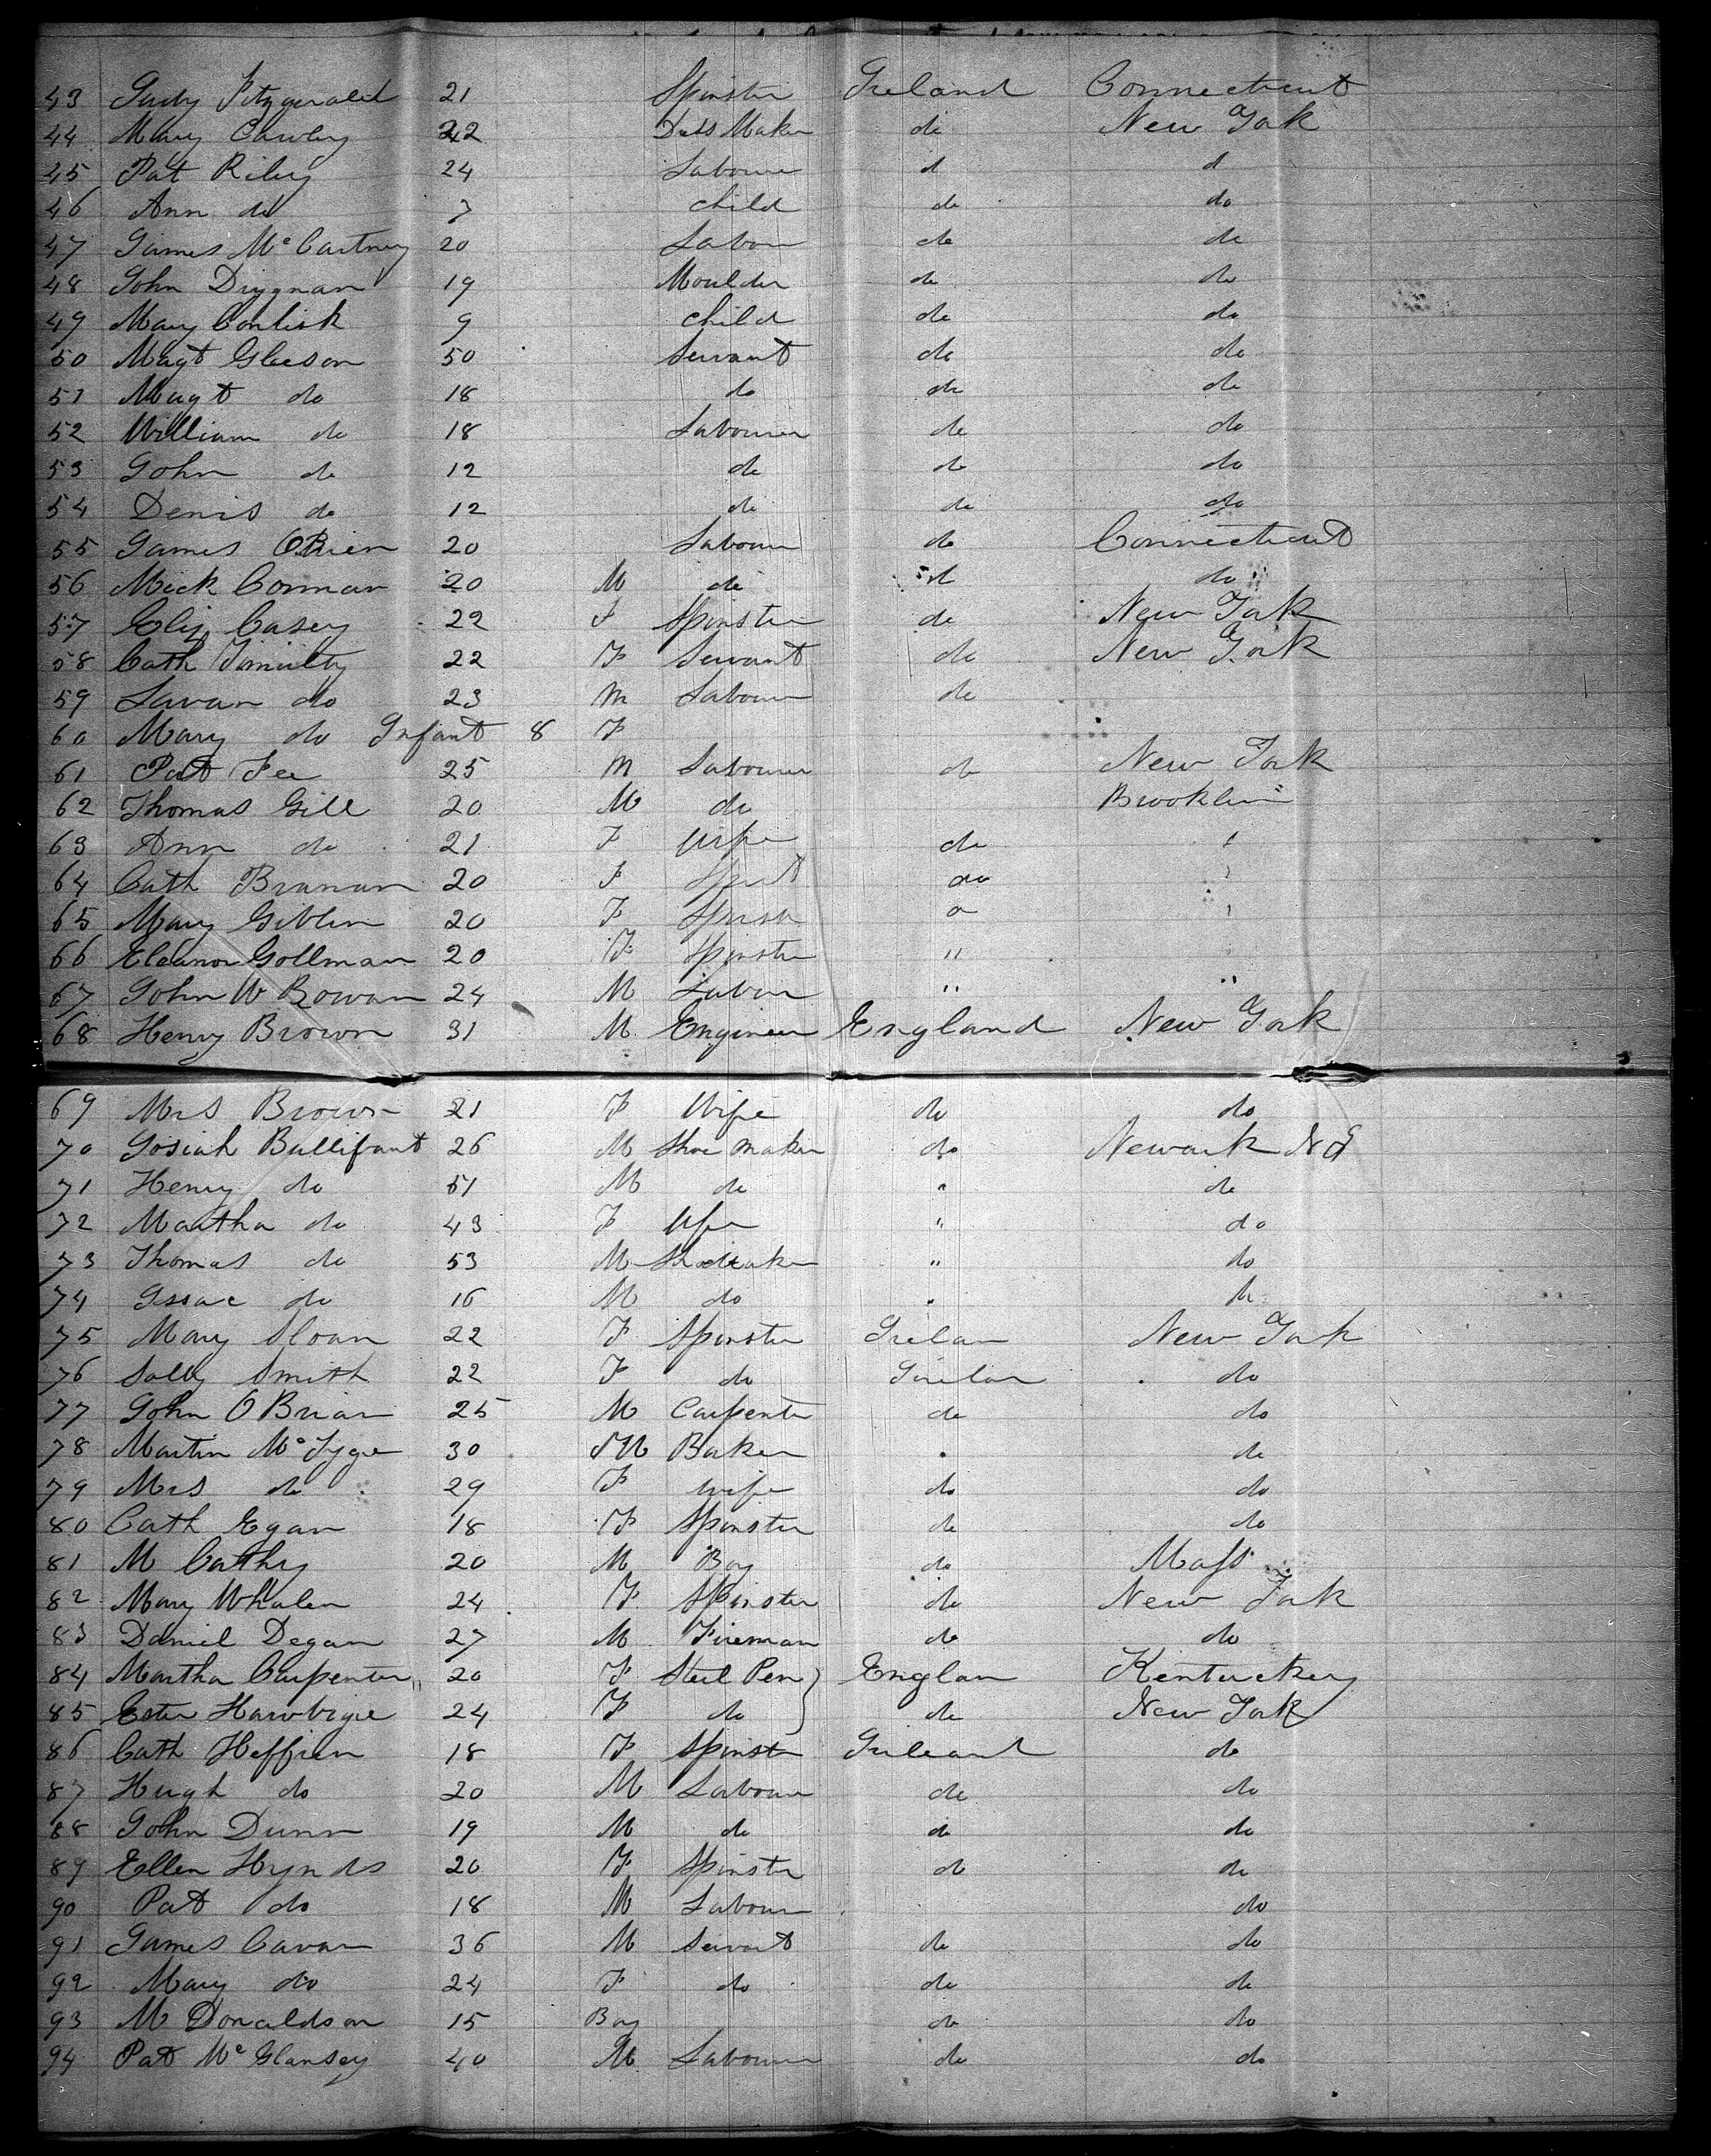 43 Judy Fitzgerald 21 Spinster Ireland Connecticut
44 Mary Cawley 22 Dress Maker do New York
45 Pat Riley 24 Labourer d d
46 Ann do 7 child do do
47 James McCartney 20 Labour do do
48 John Drygnan 19 Moulder do do
49 Mary Conlisk 9 child do do
50 Magt Gleeson 50 Servant do do
51 Magt do 18 do do do
52 William do 18 Labourer do do
53 John do 12 do do do
54 Denis do 12 do do do
55 James OBrien 20 Labour do Connecticut
56 Mick Connan 20 M do d do
57 Eliz Casey 22 F Spinster do New York
58 Cath Timulty 22 F Servant do New York
59 Lavan do 23 M Labour do
60 Mary do Infant 8 F
61 Pat Fee 25 M Labourer do New York
62 Thomas Gill 20 M do Brooklin
63 Ann do 21 F Wife do
64 Cath Branan 20 F do
65 Mary Giblin 20 F
66 Eleanor Gollman 20 F Spinster "
67 John W Bowan 24 M Labour " "
68 Henry Brown 31 M Engineer England New York
69 Mrs Brown 21 F Wife do do
70 Josiah Bullifant 26 M Shoe maker do Newark NJ
71 Henry do 51 M do " do
72 Martha do 43 F Wife " do
73 Thomas do 53 M " do
74 Issac do 16 M do
75 Mary Sloan 22 F Spinster Irelan New York
76 Sally Smith 22 F do Irelan do
77 John O Brian 25 M Carpenter do do
78 Martin McTyge 30 M Baker do
79 Mrs do 29 F wife do do
80 Cath Egan 18 F Spinster do do
81 M Cathy 20 M Boy do Mass
82 Mary Whalen 24 F Spinster do New York
83 Daniel Degan 27 M Fireman do do
84 Martha Carpenter 20 F Steel Pen Englan Kentuckey
85 Ester 24 F do do New York
86 Cath Heffrien 18 F Spinster Ireland do
87 Hugh do 20 M Labour do do
88 John Dunn 19 M do do do
89 Ellen Hynds 20 F Spinster do do
90 Pat do 18 M Labour do
91 James Cavan 36 M Servant do do
92 Mary do 24 F do do do
93 M Donaldson 15 Boy do do
94 Pat McGlansey 40 M Labourer do do